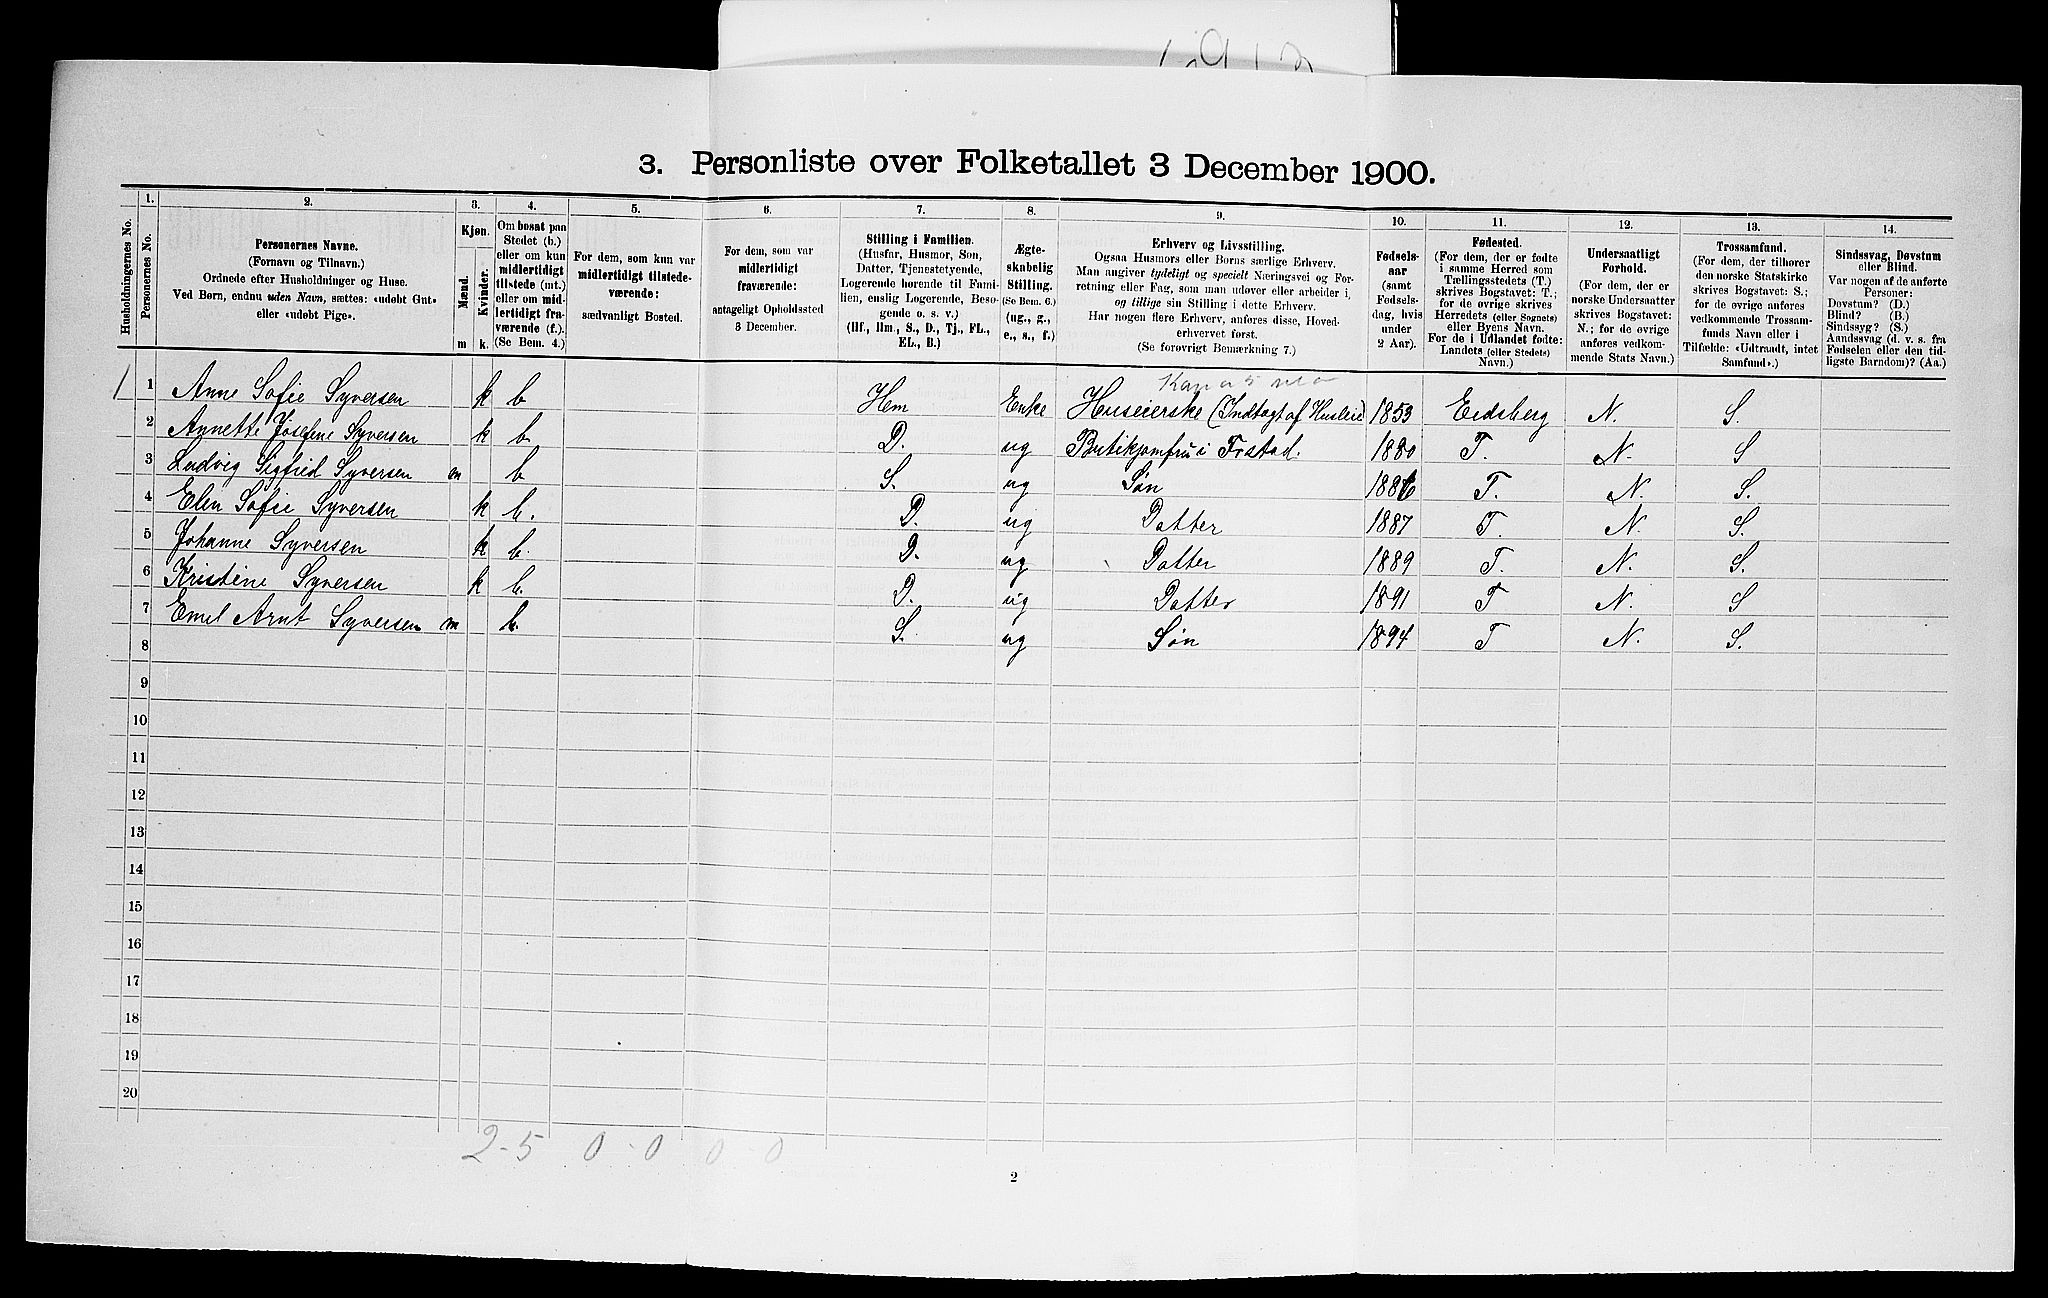 3. Personliste over Folketallet 3 December 1900.
Husholdningernes No.
1.
Personernes No.
2.
Personernes Navne.
(Fornavn og Tilnavn.)
Ordnede efter Husholdninger og Huse.
Ved Børn, endnu uden Navn, sættes: «udøbt Gut»
eller «udøbt Pige».
3.
Kjøn.
Mænd.
Kvinder.
m
k.
4.
Om bosat paa
Stedet (b.)
eller om kun
midlertidigt
tilstede (mt.)
eller om mid-
lertidigt fra-
værende (f.).
(Se Bem. 4.)
5.
For dem, som kun var
midlertidigt tilstede-
værende:
sædvanligt Bosted.
6.
For dem, som var
midlertidigt
fraværende:
antageligt Opholdssted
3 December.
7.
Stilling i Familien.
(Husfar, Husmor, Søn,
Datter, Tjenestetyende,
Logerende hørende til Fami-
lien, enslig Logerende, Besø-
gende o. s. v.)
(Hf., Hm., S., D., Tj., FL.,
EL., B.)
8.
Ægte-
skabelig
Stilling.
(Se Bem. 6.)
(ug., g.,
e., s., f.)
9.
Erhverv og Livsstilling.
Ogsaa Husmors eller Børns særlige Erhverv.
Man angiver tydeligt og specielt Næringsvei og For-
retning eller Fag, som man udøver eller arbeider i,
og tillige sin Stilling i dette Erhverv.
Har nogen flere Erhverv, anføres disse, Hoved-
erhvervet først.
(Se forøvrigt Bemærkning 7.)
10.
Fødsels-
aar
(samt
Fødsels-
dag, hvis
under
2 Aar).
11.
Fødested.
(For dem, der er fødte
i samme Herred som
Tællingsstedets (T.)
skrives Bogstavet: T.;
for de øvrige skrives
Herredets (eller Sognets)
eller Byens Navn.
For de i Udlandet fødte:
Landets (eller Stedets)
Navn.)
12.
Undersaatligt
Forhold.
(For dem, der er
norske Undersaatter
skrives Bogstavet:
N.; for de øvrige
anføres vedkom-
mende Stats Navn.)
13.
Trossamfund.
(For dem, der tilhører
den norske Statskirke
skrives Bogstavet: S.;
for de øvrige anføres
vedkommende Trossam-
funds Navn eller i
Tilfælde: «Udtraadt, intet
Samfund».)
14.
Sindssvag, Døvstum
eller Blind.
Var nogen af de anførte
Personer:
Døvstum? (D.)
Blind? (B.)
Sindssyg? (S.)
Aandssvag (d. v. s. fra
Fødselen eller den tid-
ligste Barndom)? (Aa.)
1 1 Anne Sofie Syversen k b Hm Enke Huseierske (Indtægt af Husleie) 1853 Eidsberg N. S.
2 Annette Josefine Syversen k b. D. ug Butikjomfru i Frstad. 1880 T. N. S
3 Ludvig Sigfred Syversen m b S. ug Søn 1886 T. N. S.
4 Elen Sofie Syversen k b. D. ug Datter 1887 T. N. S.
5 Johanne Syversen k b. D. ug Datter 1889 T. N. S.
6 Kristine Syversen k b. D. ug Datter 1891 T N. S
7 Emil Arnt Syversen m b. S. ug Søn 1894 T N. S.
8
9
10
11
12
13
14
15
16
17
18
19
20
2-5 0-0 0-0
2